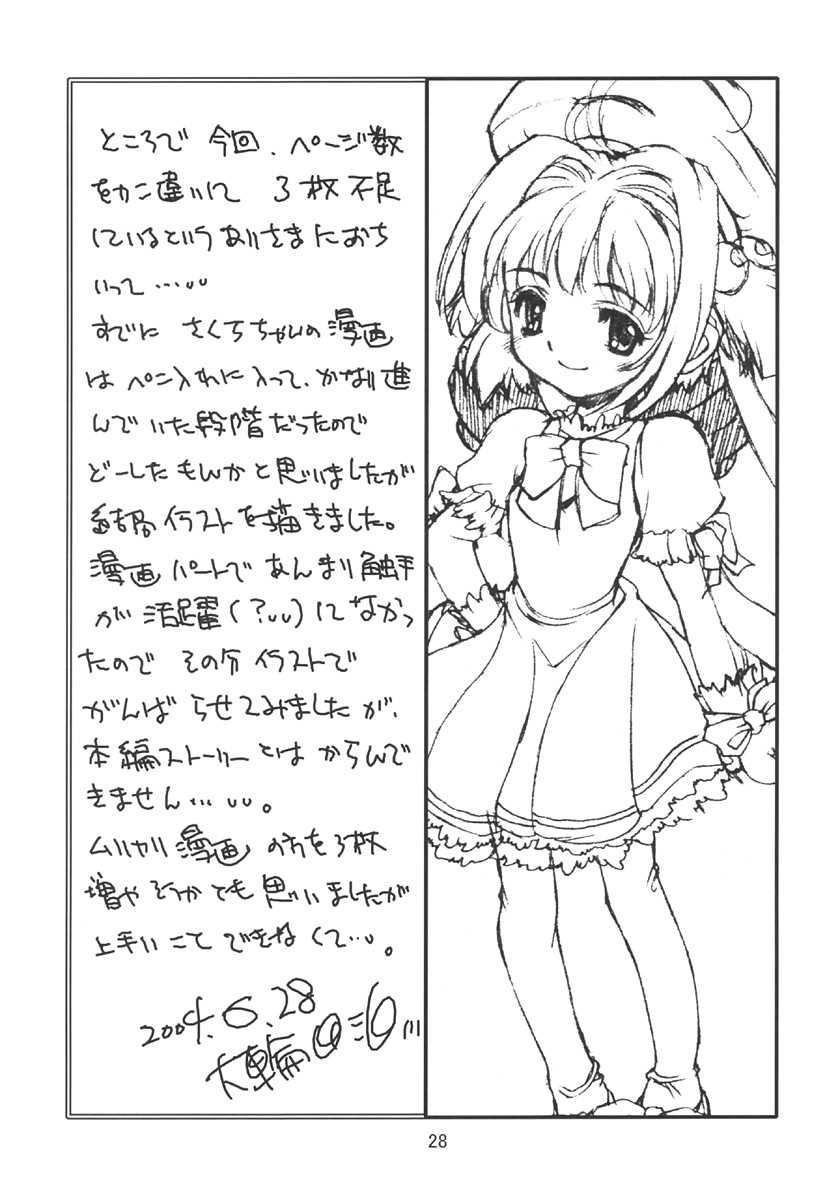 ところで 今回、ページ数
をかン違いして 3枚不足
しているというありさまにおち
いって…‥
すでに さくらちゃんの漫画
は ペン入れに入って、かなり進
んでいた段階だったので
どーしたもんかと思いましたが
結局イラストを描きました。
漫画パートであんまり触手
が活躍(?‥)しなかっ
たので その分イラストで
がんばらせてみましたが、
本編ストーリーとはからんで
きません…‥。
ムリヤリ漫画の方を3枚
増やそうかとも思いましたが
上手いことできなくて…‥。
2004.6.28
28